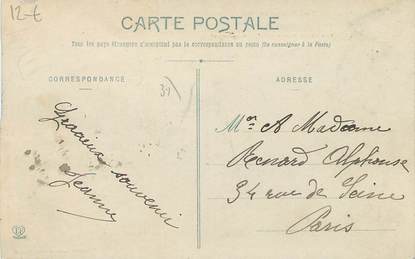 12-€
CARTE POSTALE
Tous les pays étrangers n'acceptent pas la correspondance au recto (Se renseigner à la Poste)
CORRESPONDANCE
31
Gracieux souvenir
Jeanne
ADRESSE
Mr & Madame
Renard Alphonse
34 rue de Seine
Paris